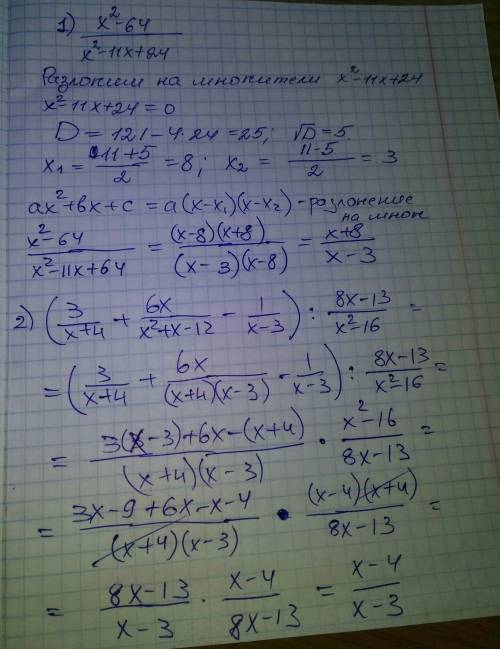 1) (x²-64)/(x²-11x+24)
Разложим на множители x²-11x+24
x²-11x+24=0
D = 121-4·24=25; √D=5
x₁ = (11+5)/2 = 8; x₂ = (11-5)/2 = 3
ax²+bx+c = a(x-x₁)(x-x₂) - разложение
на множ
(x²-64)/(x²-11x+64) = (x-8)(x+8)/(x-3)(x-8) = (x+8)/(x-3)
2) (3/(x+4) + 6x/(x²+x-12) - 1/(x-3)) : (8x-13)/(x²-16) =
= (3/(x+4) + 6x/((x+4)(x-3)) - 1/(x-3)) : (8x-13)/(x²-16) =
= (3(x-3)+6x-(x+4))/((x+4)(x-3)) · (x²-16)/(8x-13) =
= (3x-9+6x-x-4)/((x+4)(x-3)) · (x-4)(x+4)/(8x-13) =
= (8x-13)/(x-3) · (x-4)/(8x-13) = (x-4)/(x-3)